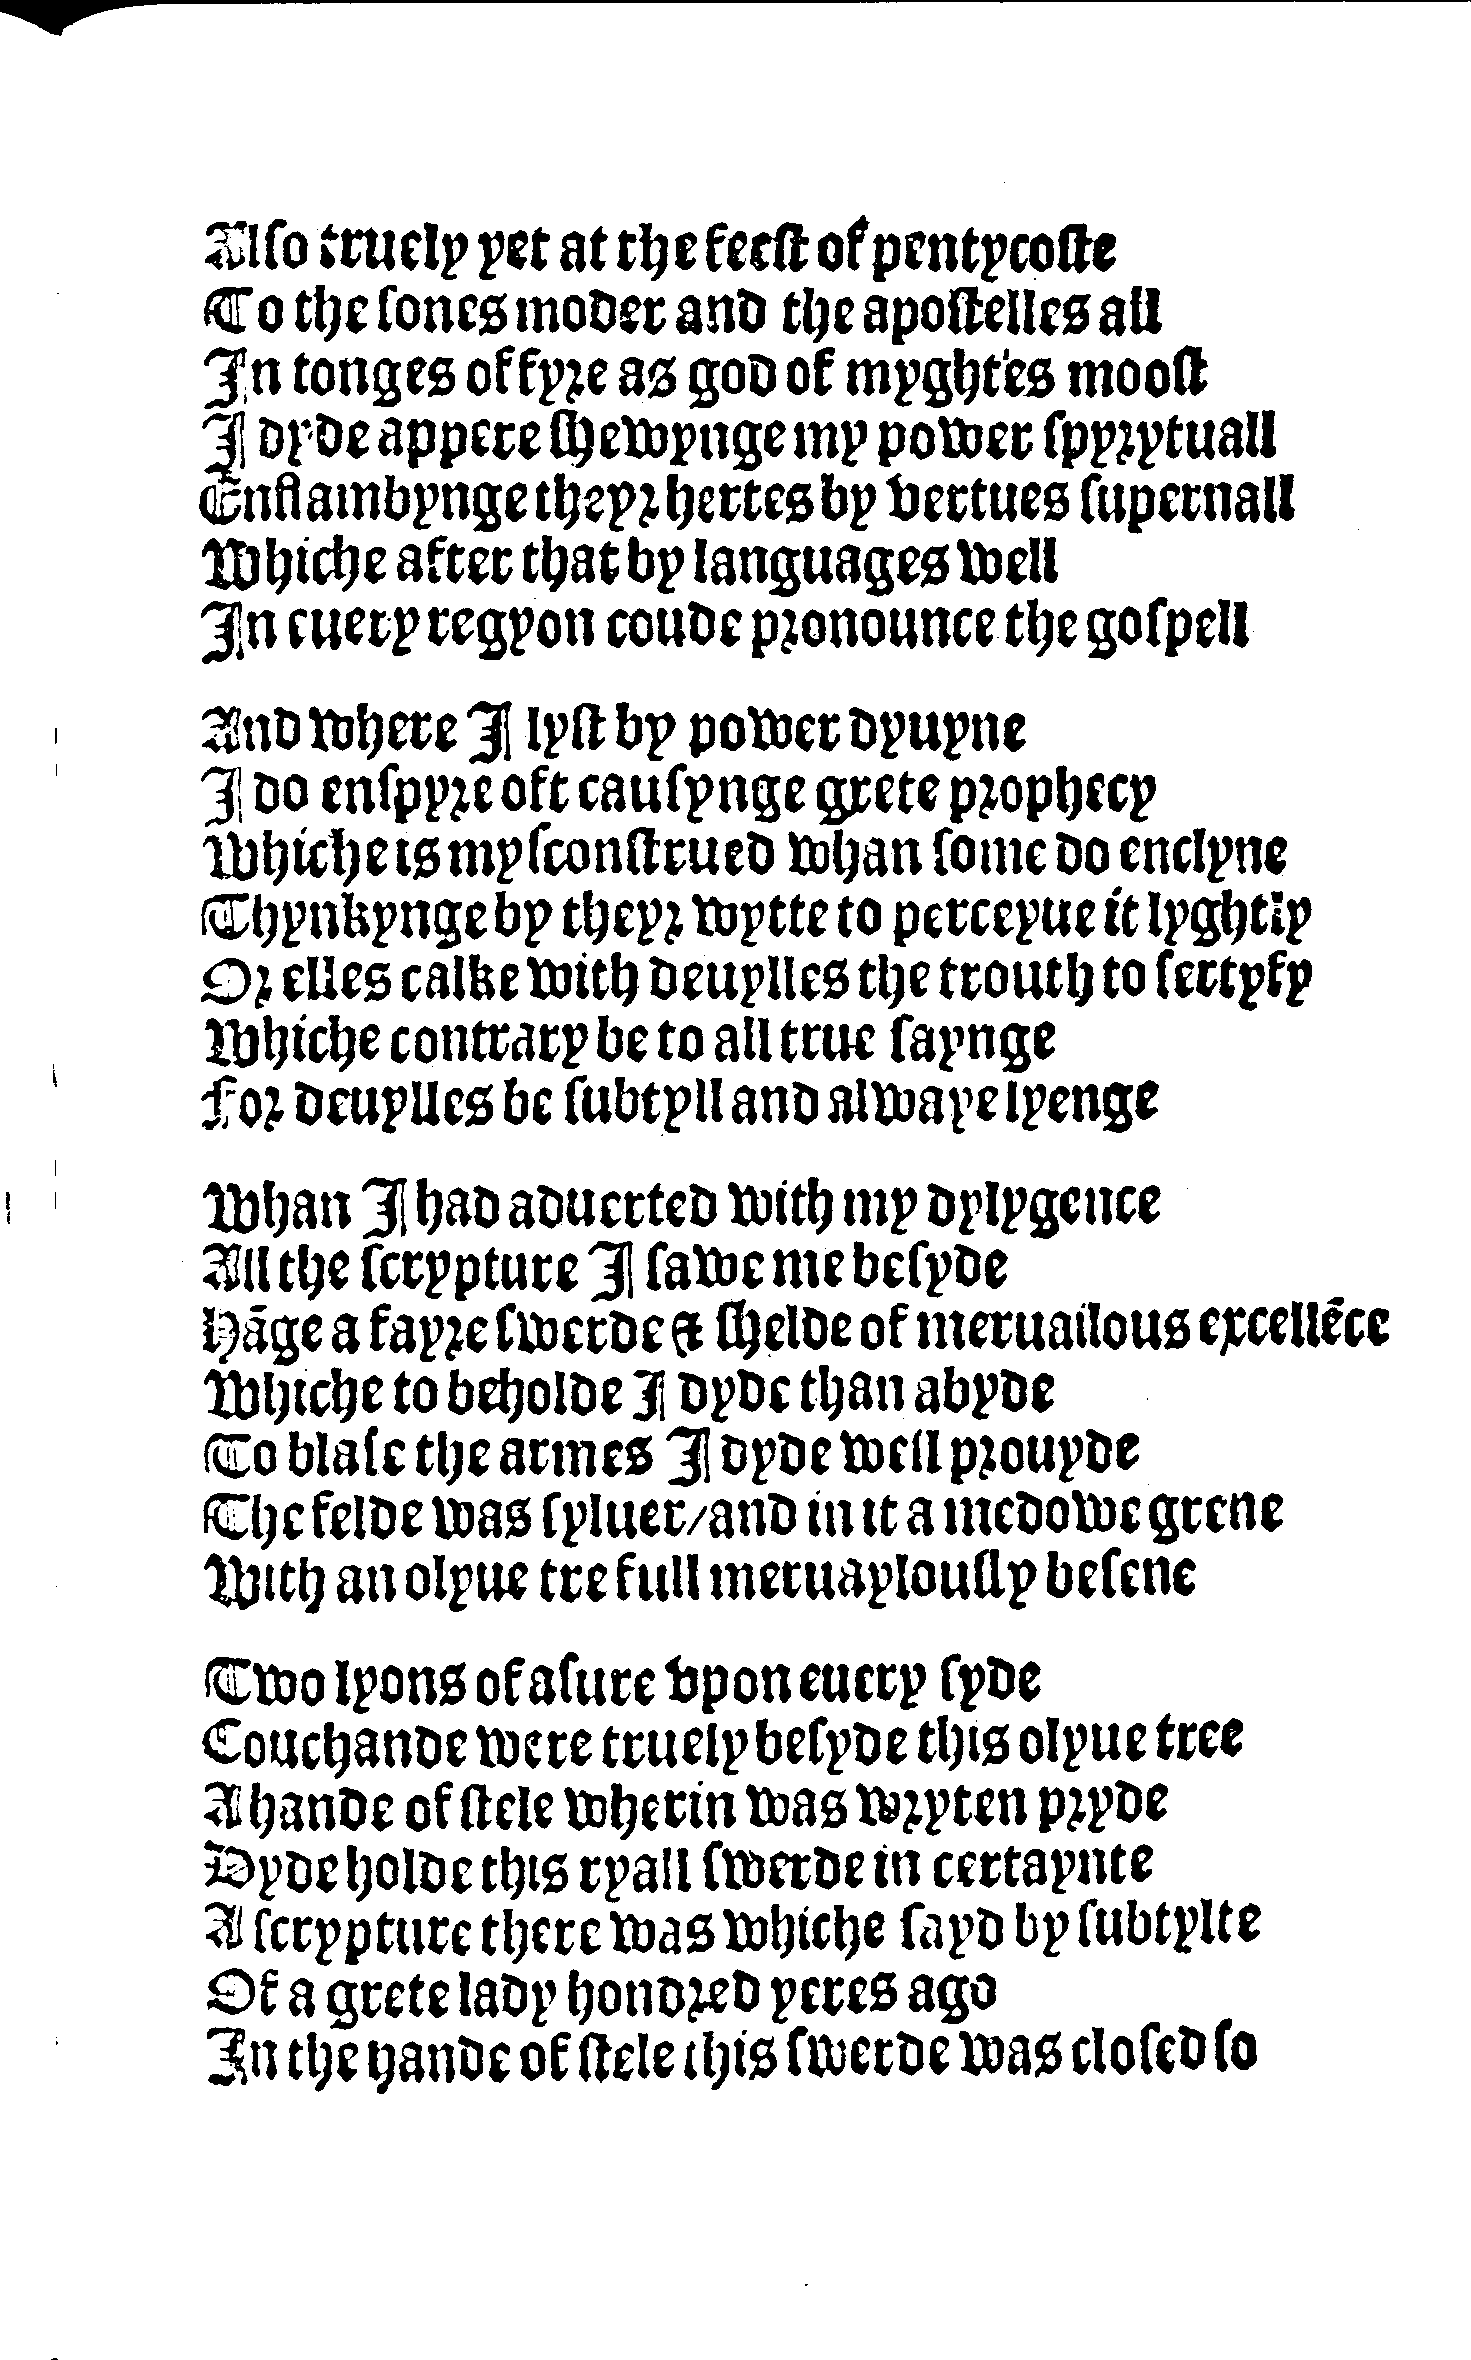 Also truely yet at the feest of pentycoste
To the sones moder and the apostelles all
In tonges of fyre as god of myghtes moost
I dyde appere shewynge my power spyrytuall
Enflambynge theyr hertes by vertues supernall
Whiche after that by languages well
In euery regyon coude pronounce the gospell

And where I lyst by power dyuyne
I do enspyre oft causynge grete prophecy
Whiche is mysconstrued whan some do enclyne
Thynkynge by theyr wytte to perceyue it lyghtly
Or elles calke with deuylles the trouth to sertyfy
Whiche contrary be to all true saynge
For deuylles be subtyll and alwaye lyenge

Whan I had aduerted with my dylygence
All the scrypture I sawe me besyde
Hāge a fayre swerde & shelde of meruailous excellēce
Whiche to beholde I dyde than abyde
To blase the armes I dyde well prouyde
The felde was syluer/and in it a medowe grene
With an olyue tre full meruaylously besene

Two lyons of asure vpon euery syde
Couchande were truely besyde this olyue tree
A hande of stele wherin was wryten pryde
Dyde holde this ryall swerde in certaynte
A scrypture there was whiche sayd by subtylte
Of a grete lady hondred yeres ago
In the hande of stele this swerde was closed so